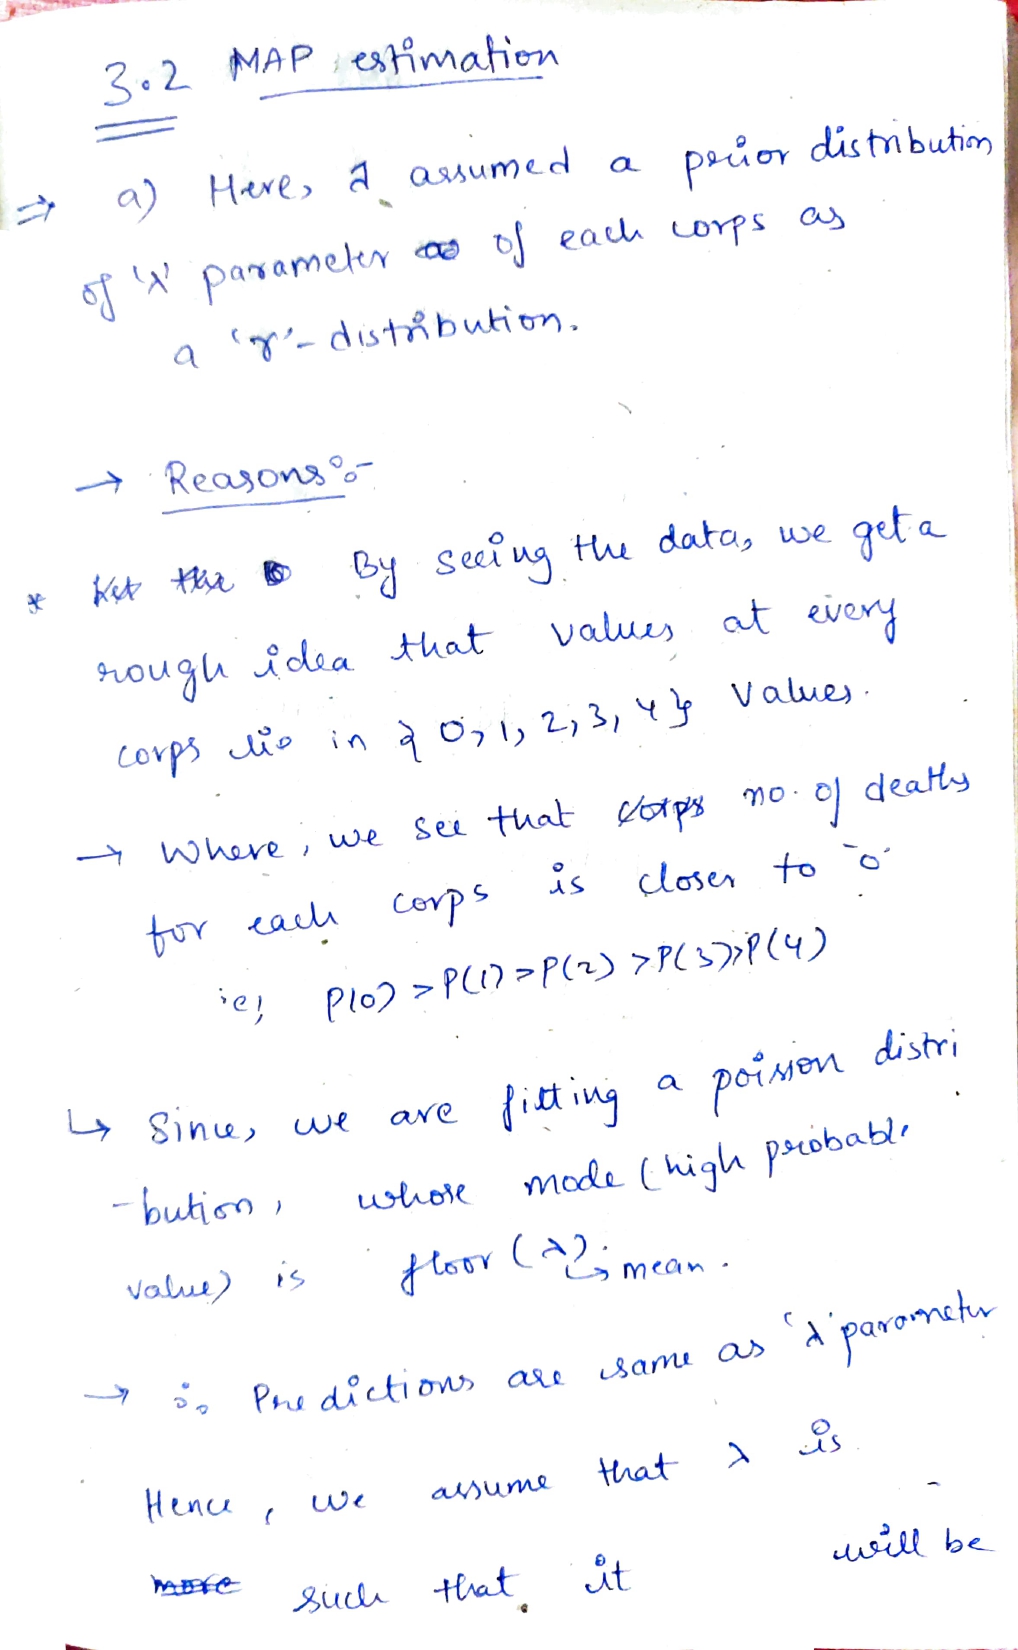 3.2 MAP estimation
⇒ a) Here, I assumed a prior distribution
of 'λ' parameter of each corps as
a 'γ'-distribution.
→ Reasons :-
* By seeing the data, we get a
rough idea that values at every
corps lie in {0, 1, 2, 3, 4} values.
→ Where, we see that no. of deaths
for each corps is closer to '0'
ie; P(0) > P(1) > P(2) > P(3) > P(4)
↳ Since, we are fitting a poission distri
-bution, whose mode (high probable
value) is floor (λ) ↳ mean.
→ ∴ Predictions are same as 'λ' parameter
Hence, we assume that λ is
such that it will be